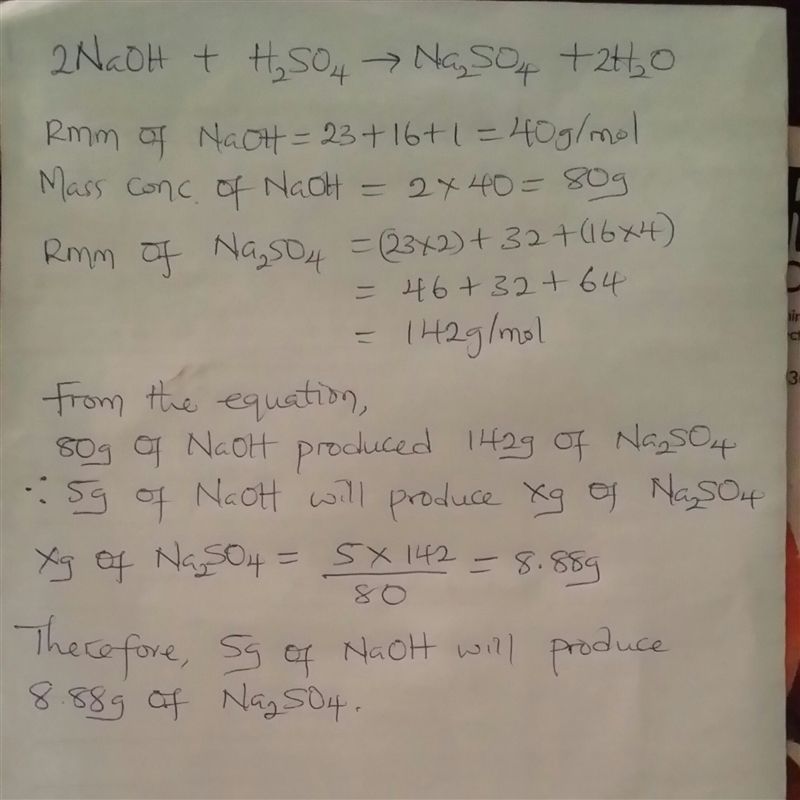 2NaOH + H₂SO₄ → Na₂SO₄ + 2H₂O
Rmm of NaOH = 23+16+1 = 40g/mol
Mass conc. of NaOH = 2 × 40 = 80g
Rmm of Na₂SO₄ = (23×2) + 32 + (16×4)
= 46 + 32 + 64
= 142g/mol
From the equation,
80g of NaOH produced 142g of Na₂SO₄
∴ 5g of NaOH will produce Xg of Na₂SO₄
Xg of Na₂SO₄ = 5 × 142 / 80 = 8.88g
Therefore, 5g of NaOH will produce
8.88g of Na₂SO₄.